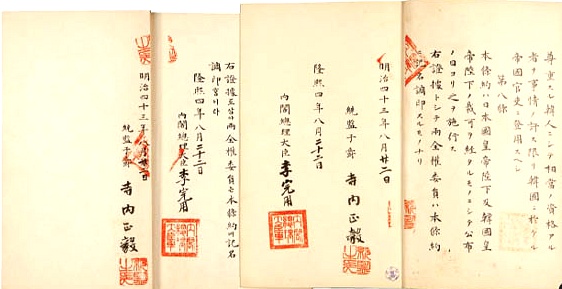 尊重スル韓人ニシテ相當ノ資格アル
者ヲ事情ノ許ス限リ韓國ニ於ケル
帝國官吏ニ登用スヘシ
第八條
本條約ハ日本國皇帝陛下及韓國皇
帝陛下ノ裁可ヲ経タルモノニシテ公布
ノ日ヨリ之ヲ施行ス
右證據トシテ兩全権委員ハ本條約
ニ記名調印スルモノナリ
明治四十三年八月廿二日
統監子爵 寺内正毅
隆熙四年八月二十二日
内閣總理大臣 李完用
右證據 兩全権委員 本條約 記名
調印
隆熙四年八月二十二日
内閣總理大臣 李完用
明治四十三年八月廿二日
統監子爵 寺内正毅